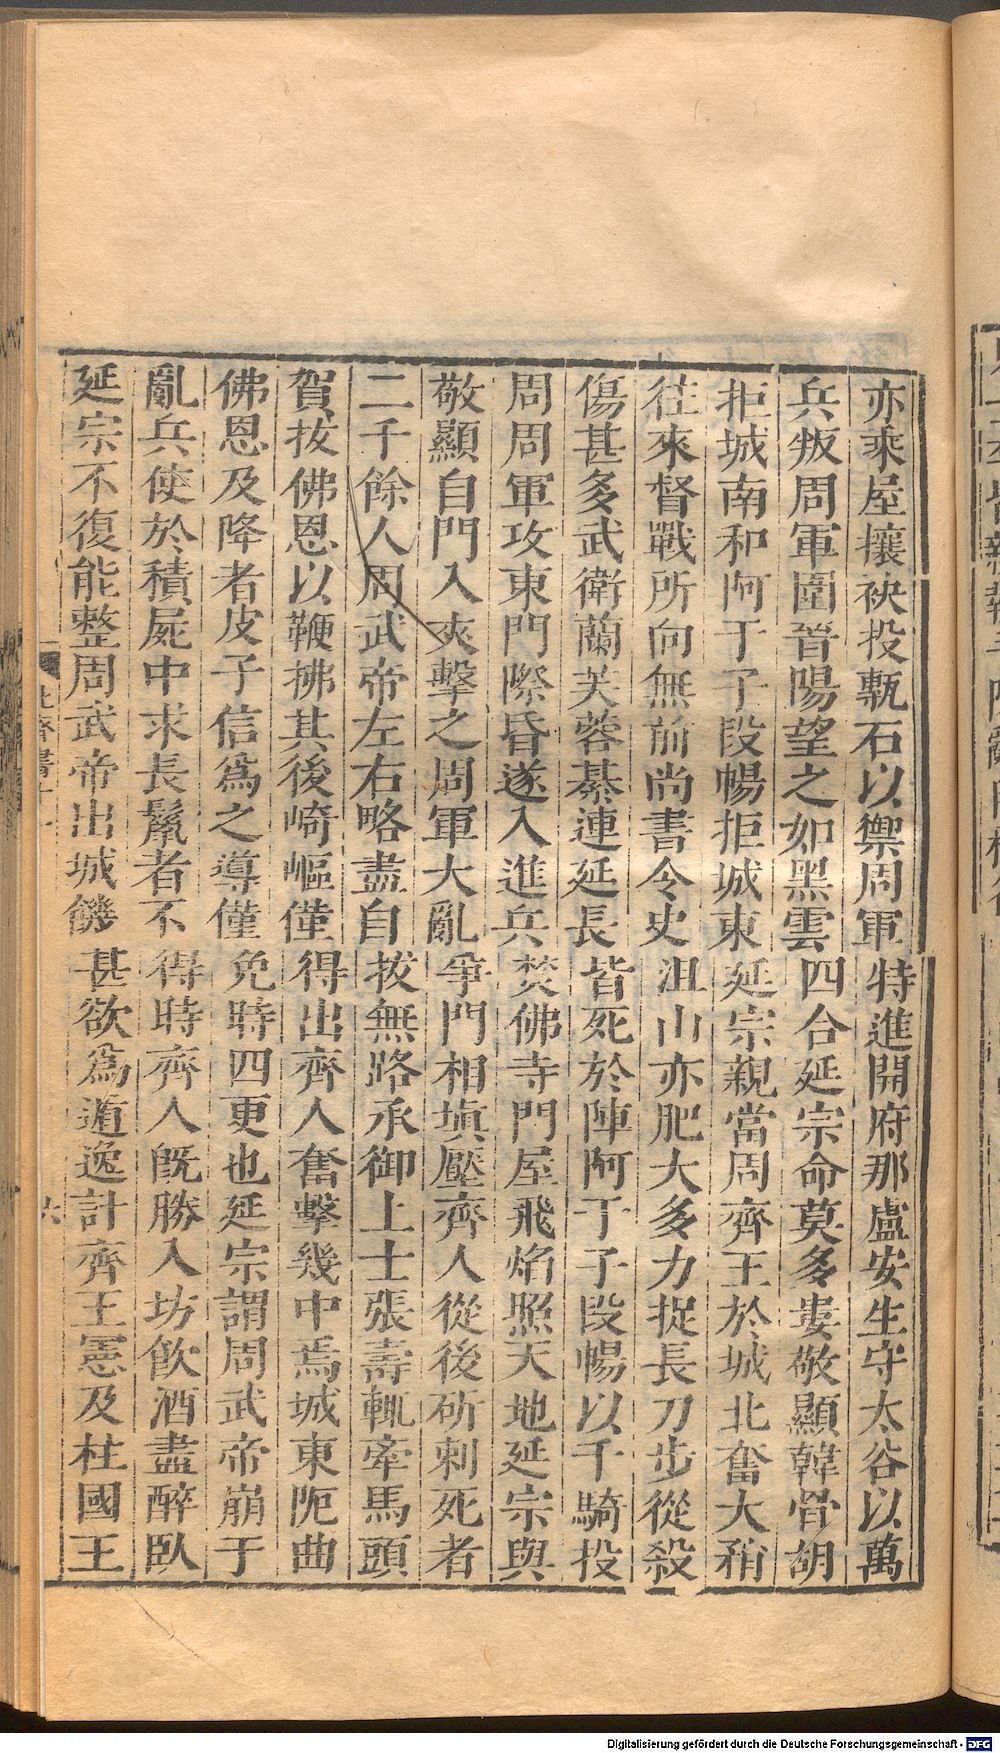 亦乘屋攘袂投甎石以禦周軍特進開府那盧安生守太谷以萬
兵叛周軍圍晉陽望之如黑雲四合延宗命莫多婁敬顯韓骨胡
拒城南和阿于子段暢拒城東延宗親當周齊王於城北奮大矟
往來督戰所向無前尚書令史沮山亦肥大多力捉長刀步從殺
傷甚多武衛蘭芙蓉綦連延長皆死於陣阿于子段暢以千騎投
周周軍攻東門際昏遂入進兵焚佛寺門屋飛焰照天地延宗與
敬顯自門入夾擊之周軍大亂爭門相塡壓齊人從後斫刺死者
二千餘人周武帝左右略盡自拔無路承御上士張壽輒牽馬頭
賀拔佛恩以鞭拂其後崎嶇僅得出齊人奮擊幾中焉城東阨曲
佛恩及降者皮子信爲之導僅免時四更也延宗謂周武帝崩于
亂兵使於積屍中求長鬣者不得時齊人旣勝入坊飲酒盡醉臥
延宗不復能整周武帝出城饑甚欲爲遁逸計齊王憲及柱國王
北齊書十一
六
Digitalisierung gefördert durch die Deutsche Forschungsgemeinschaft - DFG